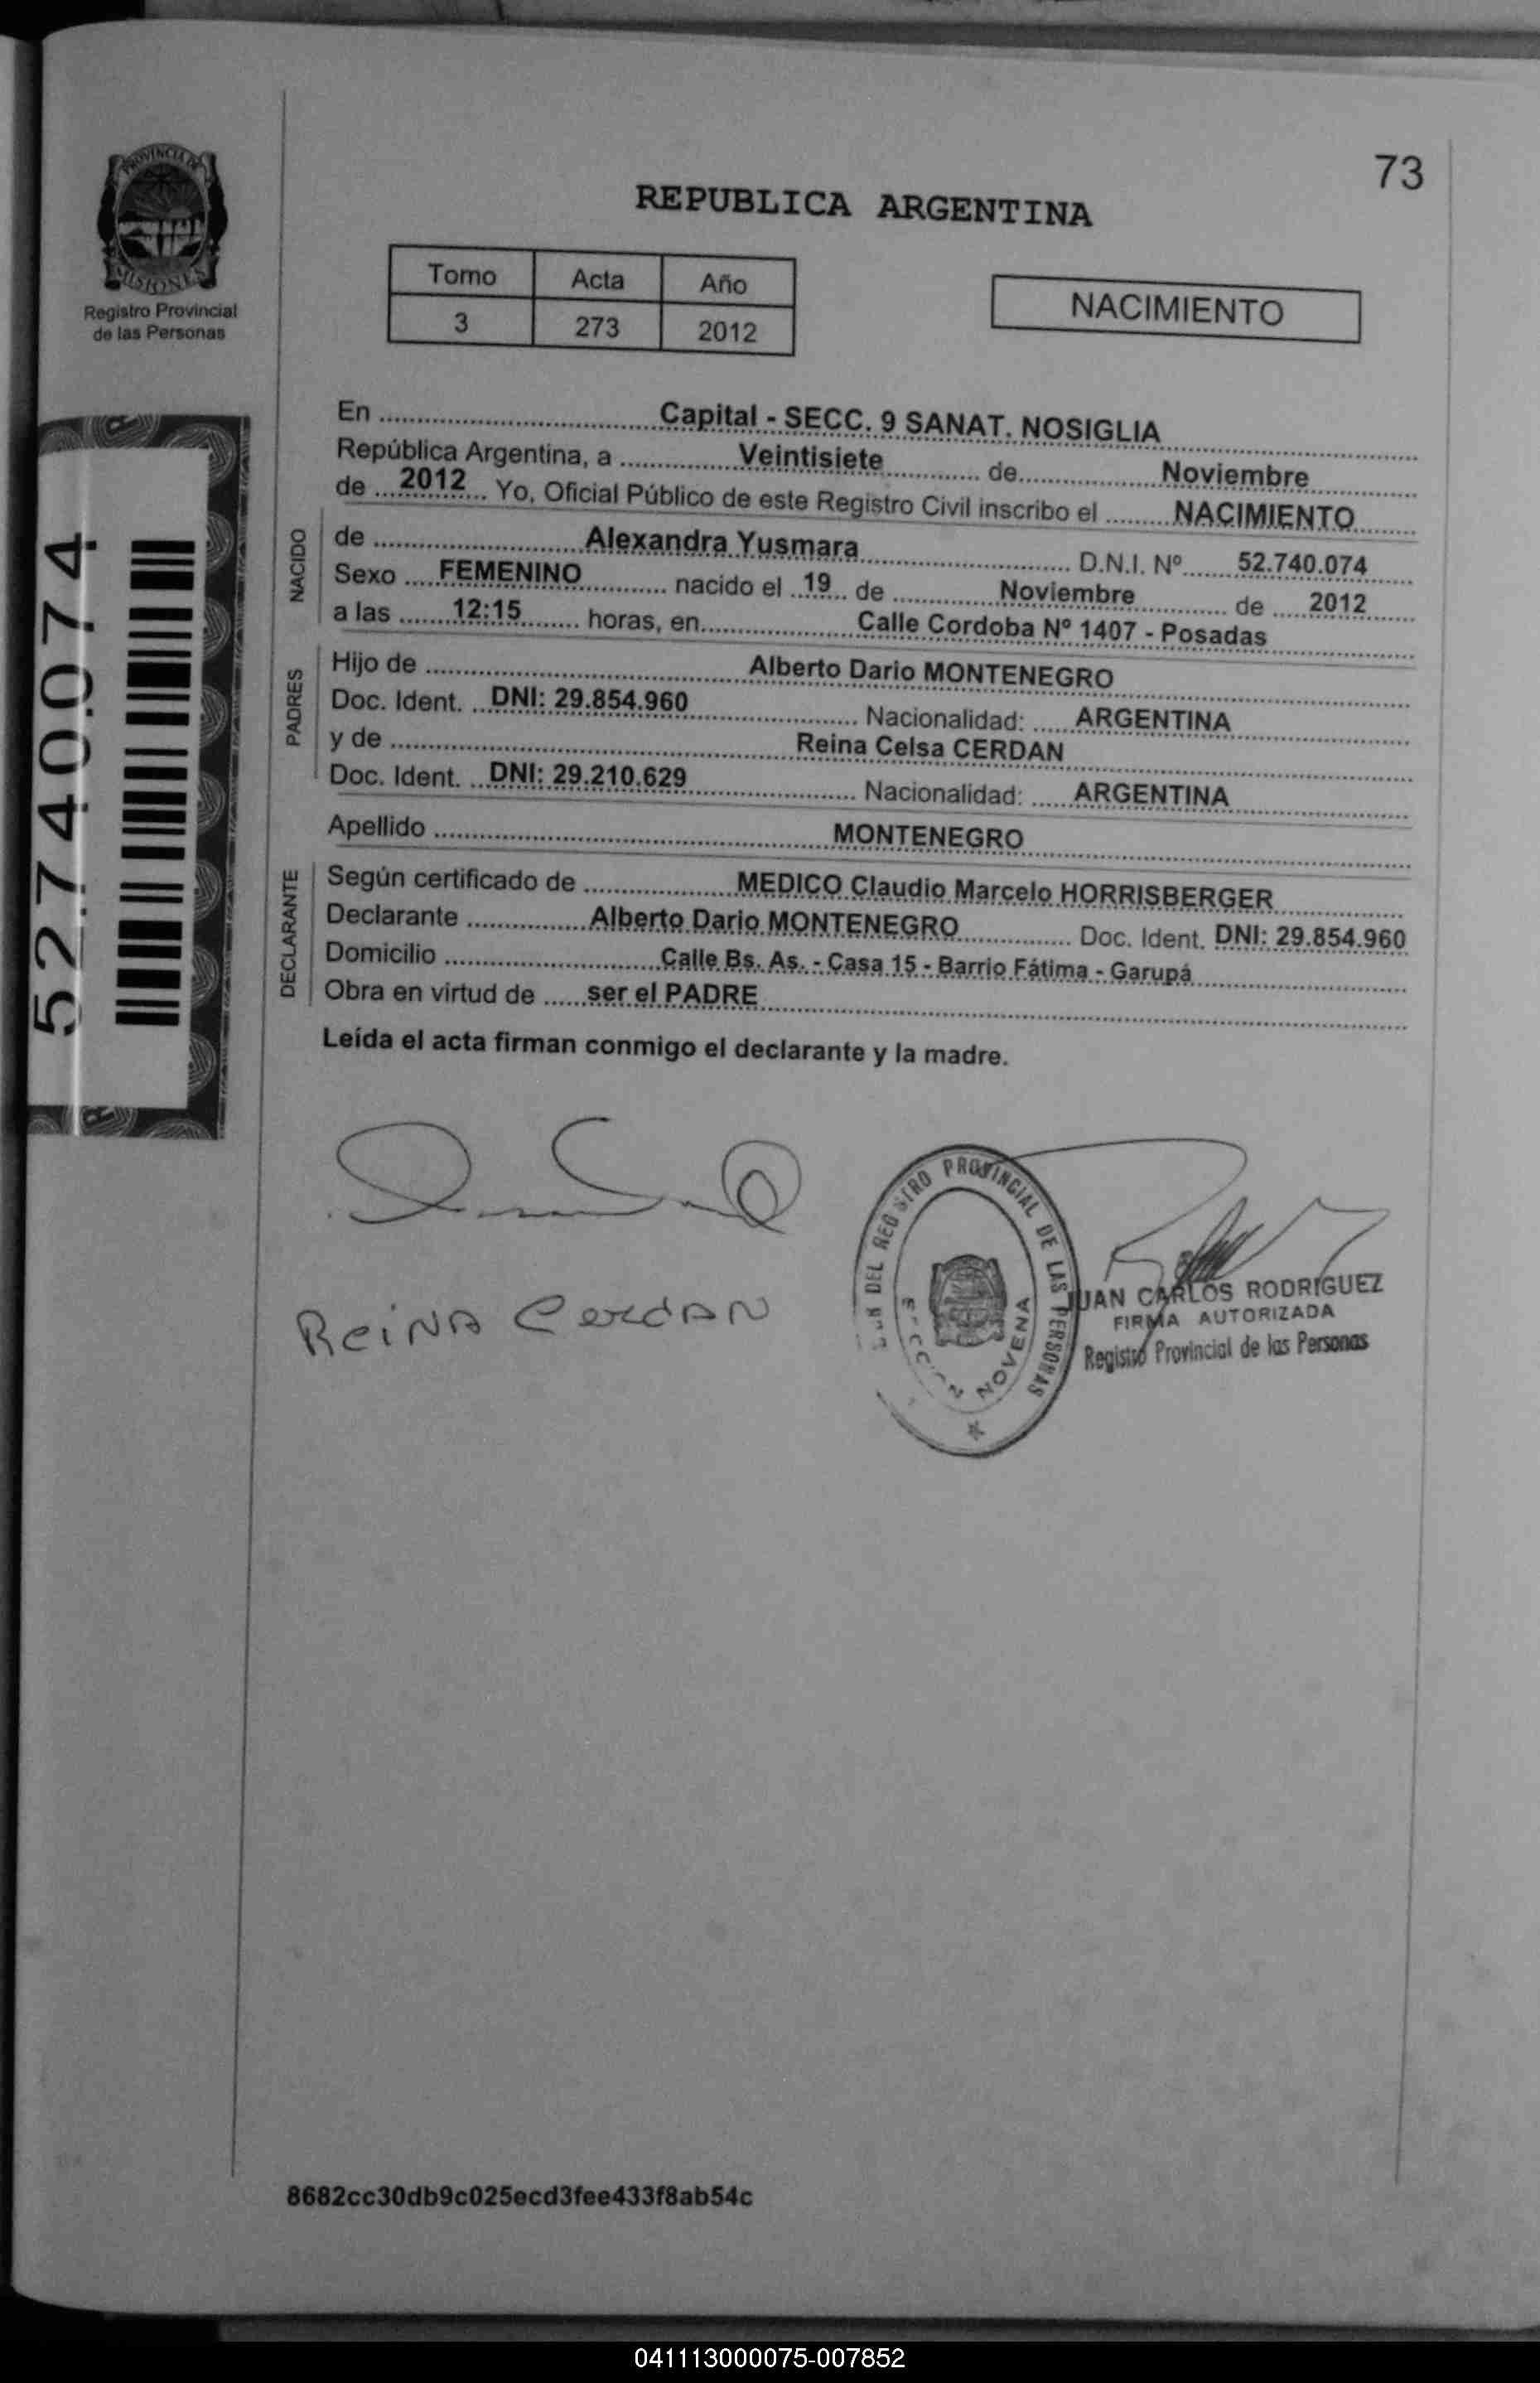 73
PROVINCIA DE
MISIONES
Registro Provincial
de las Personas
REPUBLICA ARGENTINA
Tomo Acta Año
3 273 2012
NACIMIENTO
52740074
En Capital - SECC. 9 SANAT. NOSIGLIA
República Argentina, a Veintisiete de Noviembre
de 2012 Yo, Oficial Público de este Registro Civil inscribo el NACIMIENTO
NACIDO
de Alexandra Yusmara D.N.I. Nº 52.740.074
Sexo FEMENINO nacido el 19 de Noviembre de 2012
a las 12:15 horas, en Calle Cordoba Nº 1407 - Posadas
PADRES
Hijo de Alberto Dario MONTENEGRO
Doc. Ident. DNI: 29.854.960 Nacionalidad: ARGENTINA
y de Reina Celsa CERDAN
Doc. Ident. DNI: 29.210.629 Nacionalidad: ARGENTINA
Apellido MONTENEGRO
DECLARANTE
Según certificado de MEDICO Claudio Marcelo HORRISBERGER
Declarante Alberto Dario MONTENEGRO Doc. Ident. DNI: 29.854.960
Domicilio Calle Bs. As. - Casa 15 - Barrio Fátima - Garupá
Obra en virtud de ser el PADRE
Leída el acta firman conmigo el declarante y la madre.
REINA CERDAN
DEL REGISTRO PROVINCIAL DE LAS PERSONAS
NOVENA
JUAN CARLOS RODRIGUEZ
FIRMA AUTORIZADA
Registro Provincial de las Personas
8682cc30db9c025ecd3fee433f8ab54c
041113000075-007852